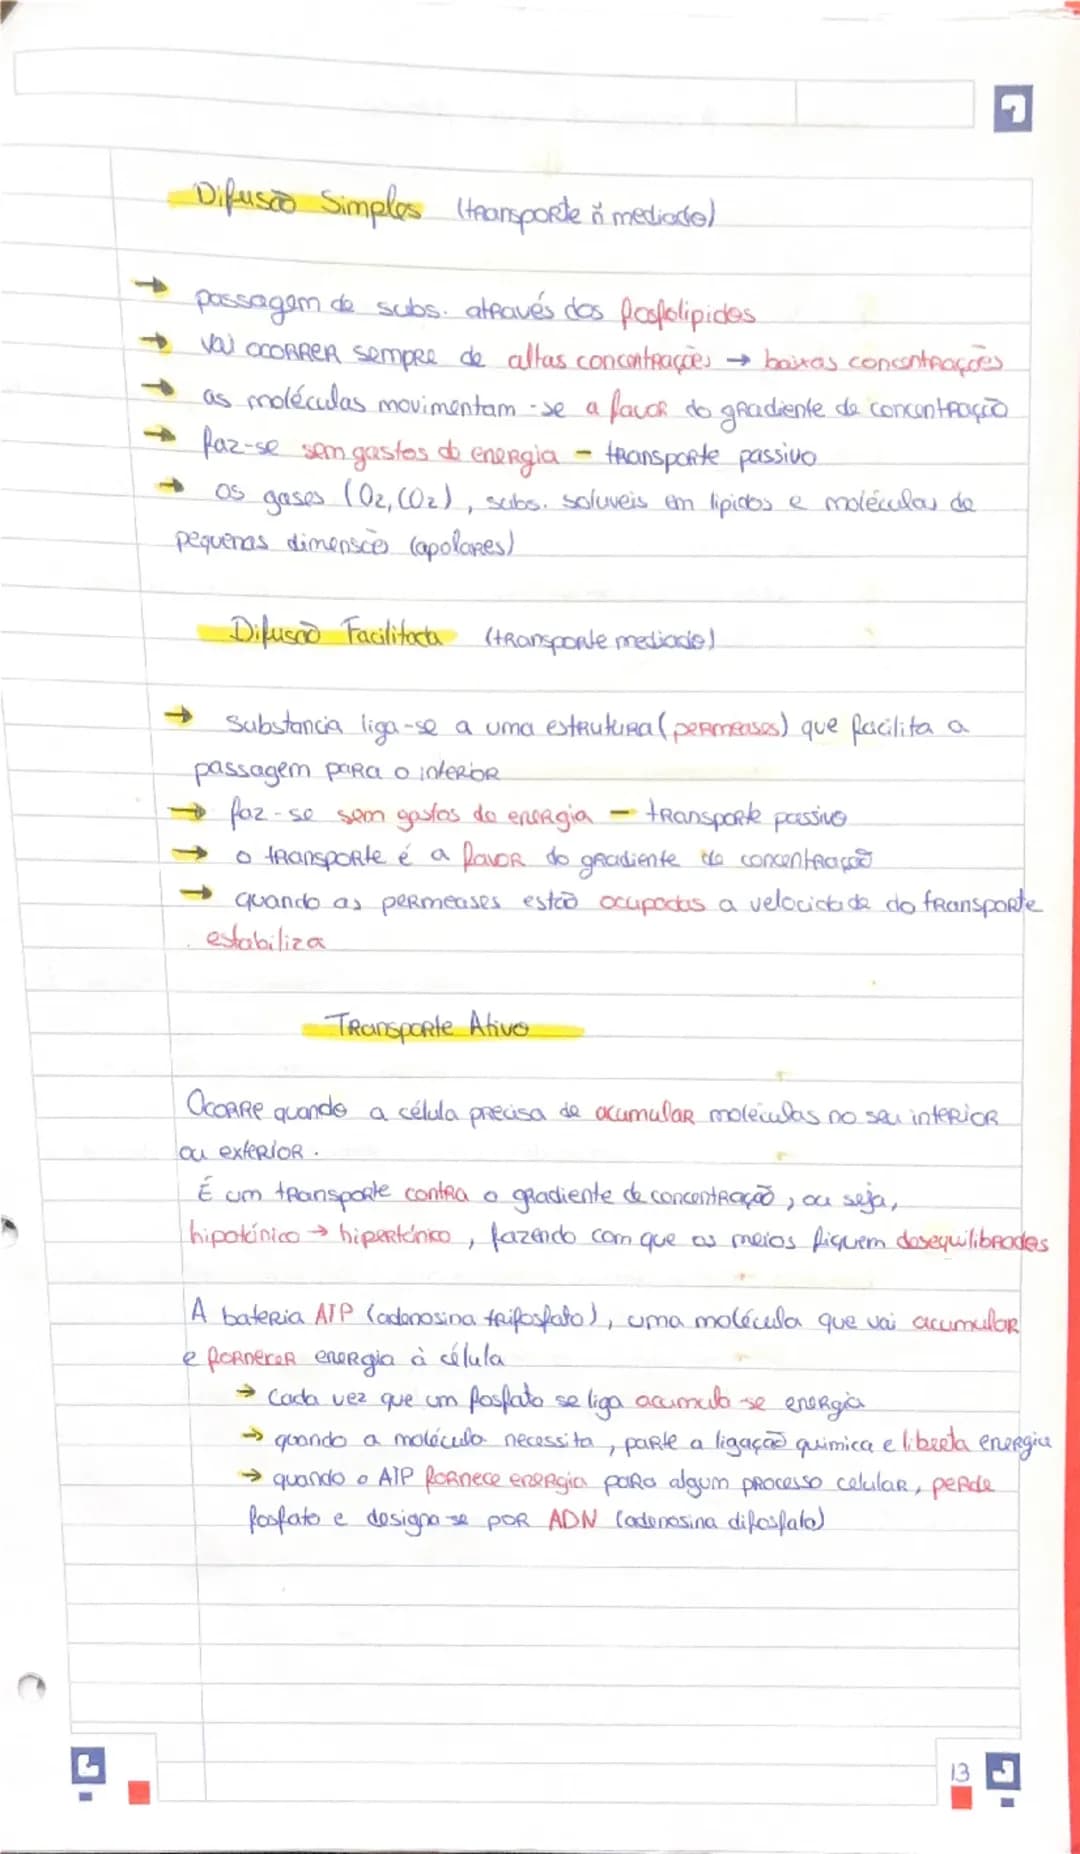 Difusão Simples (transporte ñ mediado)
→ passagem de subs. através dos fosfolipidos
→ vai ocorrer sempre de altas concentrações → baixas concentrações
→ as moléculas movimentam-se a favor do gradiente de concentração
→ faz-se sem gastos de energia - transporte passivo
→ os gases (O2, CO2), subs. soluveis em lipidos e moléculas de
pequenas dimensões (apolares)
Difusão Facilitada (transporte mediado)
→ Substancia liga-se a uma estrutura (permeases) que facilita a
passagem para o interior
→ faz-se sem gastos de energia - transporte passivo
→ o transporte é a favor do gradiente de concentração
→ quando as permeases estão ocupadas a velocidade do transporte
estabiliza
Transporte Ativo
Ocorre quando a célula precisa de acumular moléculas no seu interior
ou exterior.
É um transporte contra o gradiente de concentração, ou seja,
hipotónico → hipertónico, fazendo com que os meios fiquem desequilibrados
A bateria ATP (adenosina trifosfato), uma molécula que vai acumular
e fornecer energia à célula
→ Cada vez que um fosfato se liga acumula-se energia
→ quando a molécula necessita, parte a ligação quimica e liberta energia
→ quando o ATP fornece energia para algum processo celular, perde
fosfato e designa-se por ADN (adenosina difosfato)
13